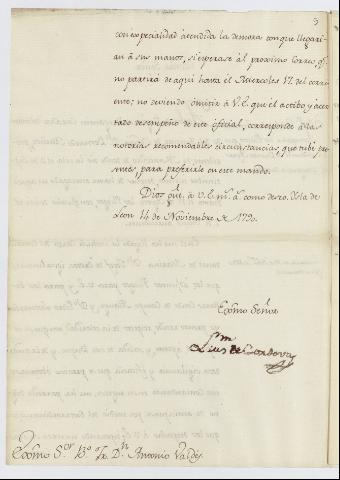 5
con especialidad atendida la demora con que llegari-
an à sus manos, si esperase al proximo Correo, qe.
no partirà de aqui hasta el Miercoles 17 del corri-
ente; no deviendo omitir à V.E. que el activo y acer-
tado desempeño de este oficial, corresponde à las
notorias recomendables circunstancias, que tube pre-
sentes, para preferirle en este mando.
Dios gue. à V.E. ms. as. como deseo. Ysla de
Leon 14 de Noviembre de 1790.
Exĉmo Señor
Luis de Cordova
Exĉmo Sor. Bo. Fr. Dn. Antonio Valdès.